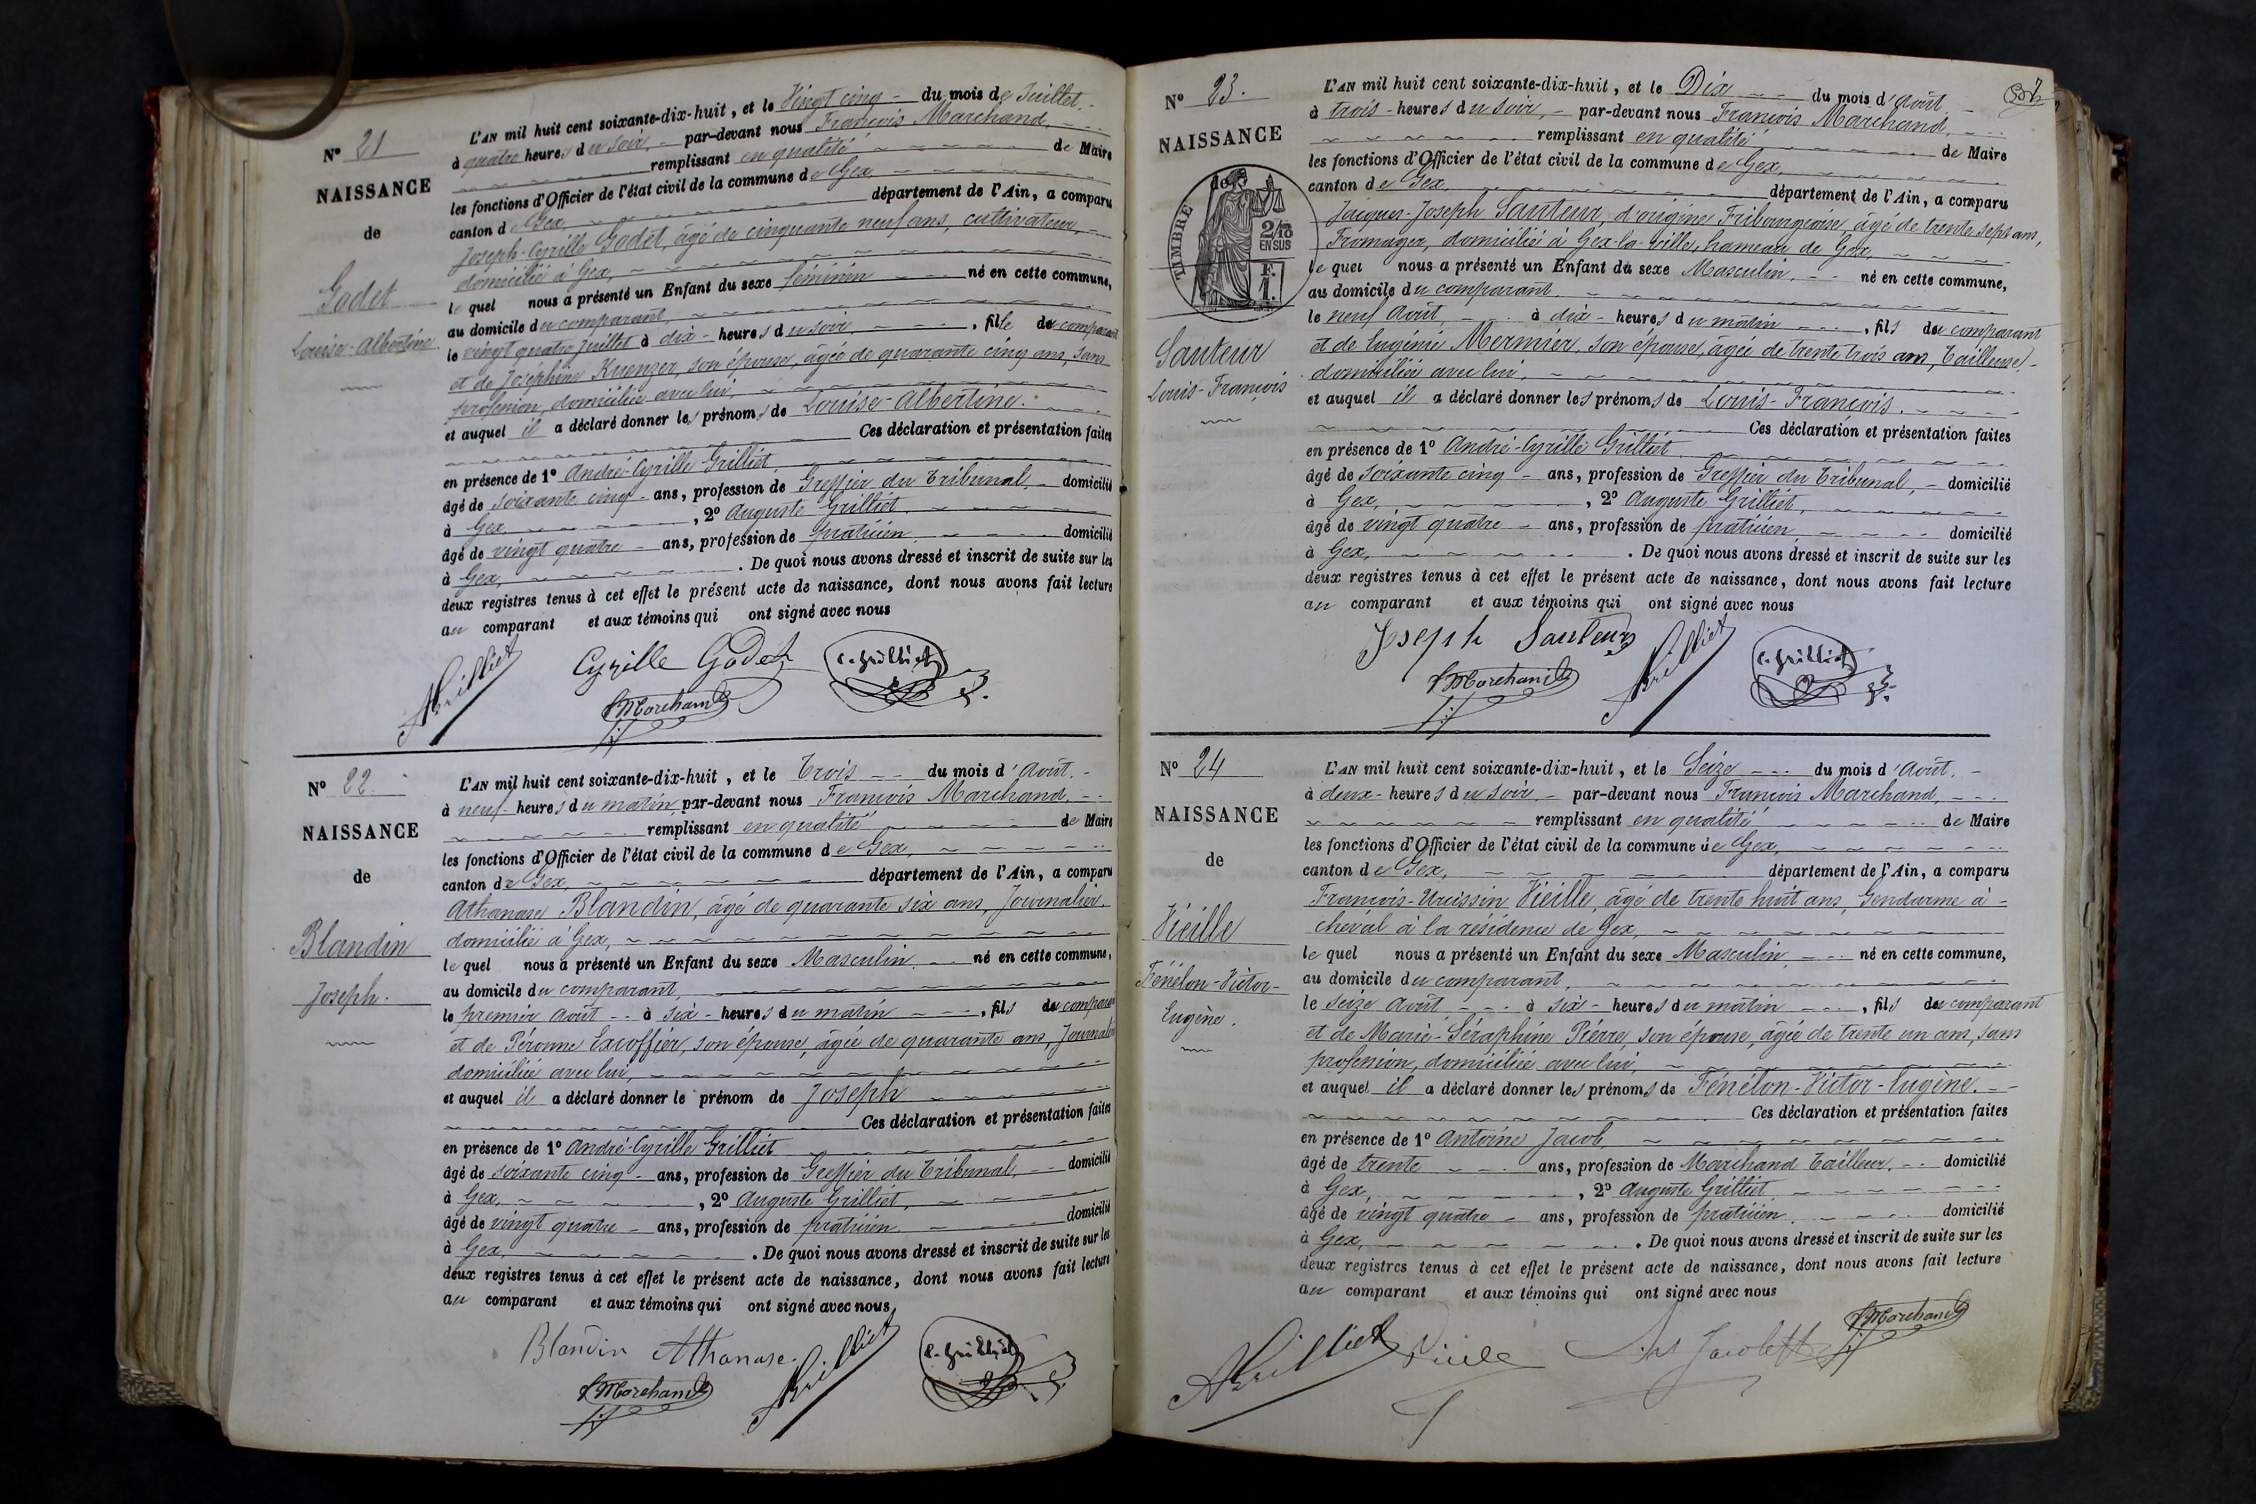 N° 21
NAISSANCE
de
Godet
Louise-Albertine
L'AN mil huit cent soixante-dix-huit, et le Vingt cinq du mois de Juillet
à quatre heures du soir, par-devant nous François Marchand,
remplissant en qualité de Maire
les fonctions d'Officier de l'état civil de la commune de Gex,
canton de Gex, département de l'Ain, a comparu
Joseph-Cyrille Godet, âgé de cinquante neuf ans, cultivateur,
domicilié à Gex,
le quel nous a présenté un Enfant du sexe féminin né en cette commune,
au domicile du comparant,
le vingt quatre Juillet à dix heures du soir, fille du comparant
et de Joséphine Kuenzer, son épouse, âgée de quarante cinq ans, sans
profession, domiciliée avec lui,
et auquel il a déclaré donner les prénoms de Louise-Albertine.
Ces déclaration et présentation faites
en présence de 1° André-Cyrille Grilliet,
âgé de soixante cinq ans, profession de Greffier du Tribunal, domicilié
à Gex, , 2° Auguste Grilliet,
âgé de vingt quatre ans, profession de praticien, domicilié
à Gex, . De quoi nous avons dressé et inscrit de suite sur les
deux registres tenus à cet effet le présent acte de naissance, dont nous avons fait lecture
au comparant et aux témoins qui ont signé avec nous
AGrilliet Cyrille Godet C. Grilliet
F Marchand
N° 22.
NAISSANCE
de
Blandin
Joseph.
L'AN mil huit cent soixante-dix-huit, et le Trois du mois d'Août.
à neuf heures du matin, par-devant nous François Marchand,
remplissant en qualité de Maire
les fonctions d'Officier de l'état civil de la commune de Gex,
canton de Gex, département de l'Ain, a comparu
Athanase Blandin, âgé de quarante six ans, Journalier,
domicilié à Gex,
le quel nous a présenté un Enfant du sexe Masculin, né en cette commune,
au domicile du comparant,
le premier Août à six heures du matin, fils du comparant
et de Péronne Excoffier, son épouse, âgée de quarante ans, Journal
domiciliée avec lui,
et auquel il a déclaré donner le prénom de Joseph
Ces déclaration et présentation faites
en présence de 1° André-Cyrille Grilliet
âgé de soixante cinq ans, profession de Greffier du Tribunal, domicilié
à Gex, , 2° Auguste Grilliet,
âgé de vingt quatre ans, profession de praticien, domicilié
à Gex, . De quoi nous avons dressé et inscrit de suite sur les
deux registres tenus à cet effet le présent acte de naissance, dont nous avons fait lecture
au comparant et aux témoins qui ont signé avec nous,
Blandin Athanase. AGrilliet C. Grilliet
F Marchand
N° 23.
NAISSANCE
de
TIMBRE
2/10
EN SUS
F.
1.
Sauteur
Louis-François
L'AN mil huit cent soixante-dix-huit, et le Dix du mois d'Août
à trois heures du soir, par-devant nous François Marchand,
remplissant en qualité de Maire
les fonctions d'Officier de l'état civil de la commune de Gex,
canton de Gex, département de l'Ain, a comparu
Jacques-Joseph Sauteur, d'origine Fribourgeoise, âgé de trente sept ans,
Fromager, domicilié à Gex-la-ville, hameau de Gex,
le quel nous a présenté un Enfant du sexe Masculin, né en cette commune,
au domicile du comparant,
le neuf Août, à dix heures du matin, fils du comparant
et de Eugénie Mermier, son épouse, âgée de trente trois ans, Tailleuse,
domiciliée avec lui,
et auquel il a déclaré donner les prénoms de Louis-François.
Ces déclaration et présentation faites
en présence de 1° André-Cyrille Grilliet
âgé de soixante cinq ans, profession de Greffier du Tribunal, domicilié
à Gex, , 2° Auguste Grilliet,
âgé de vingt quatre ans, profession de praticien, domicilié
à Gex, . De quoi nous avons dressé et inscrit de suite sur les
deux registres tenus à cet effet le présent acte de naissance, dont nous avons fait lecture
au comparant et aux témoins qui ont signé avec nous
Joseph Sauteur AGrilliet C. Grilliet
F Marchand
N° 24
NAISSANCE
de
Vieille
Fénélon-Victor-
Eugène.
L'AN mil huit cent soixante-dix-huit, et le Seize du mois d'Août,
à deux heures du soir, par-devant nous François Marchand,
remplissant en qualité de Maire
les fonctions d'Officier de l'état civil de la commune de Gex,
canton de Gex, département de l'Ain, a comparu
François-Urcissin Vieille, âgé de trente huit ans, Gendarme à
cheval à la résidence de Gex,
le quel nous a présenté un Enfant du sexe Masculin, né en cette commune,
au domicile du comparant,
le seize Août à six heures du matin, fils du comparant
et de Marie-Séraphine Pierre, son épouse, âgée de trente un ans, sans
profession, domiciliée avec lui,
et auquel il a déclaré donner les prénoms de Fénélon-Victor-Eugène.
Ces déclaration et présentation faites
en présence de 1° Antoine Jacob,
âgé de trente ans, profession de Marchand Tailleur, domicilié
à Gex, , 2° Auguste Grilliet,
âgé de vingt quatre ans, profession de praticien, domicilié
à Gex, . De quoi nous avons dressé et inscrit de suite sur les
deux registres tenus à cet effet le présent acte de naissance, dont nous avons fait lecture
au comparant et aux témoins qui ont signé avec nous
F Marchand
AGrilliet Vieille